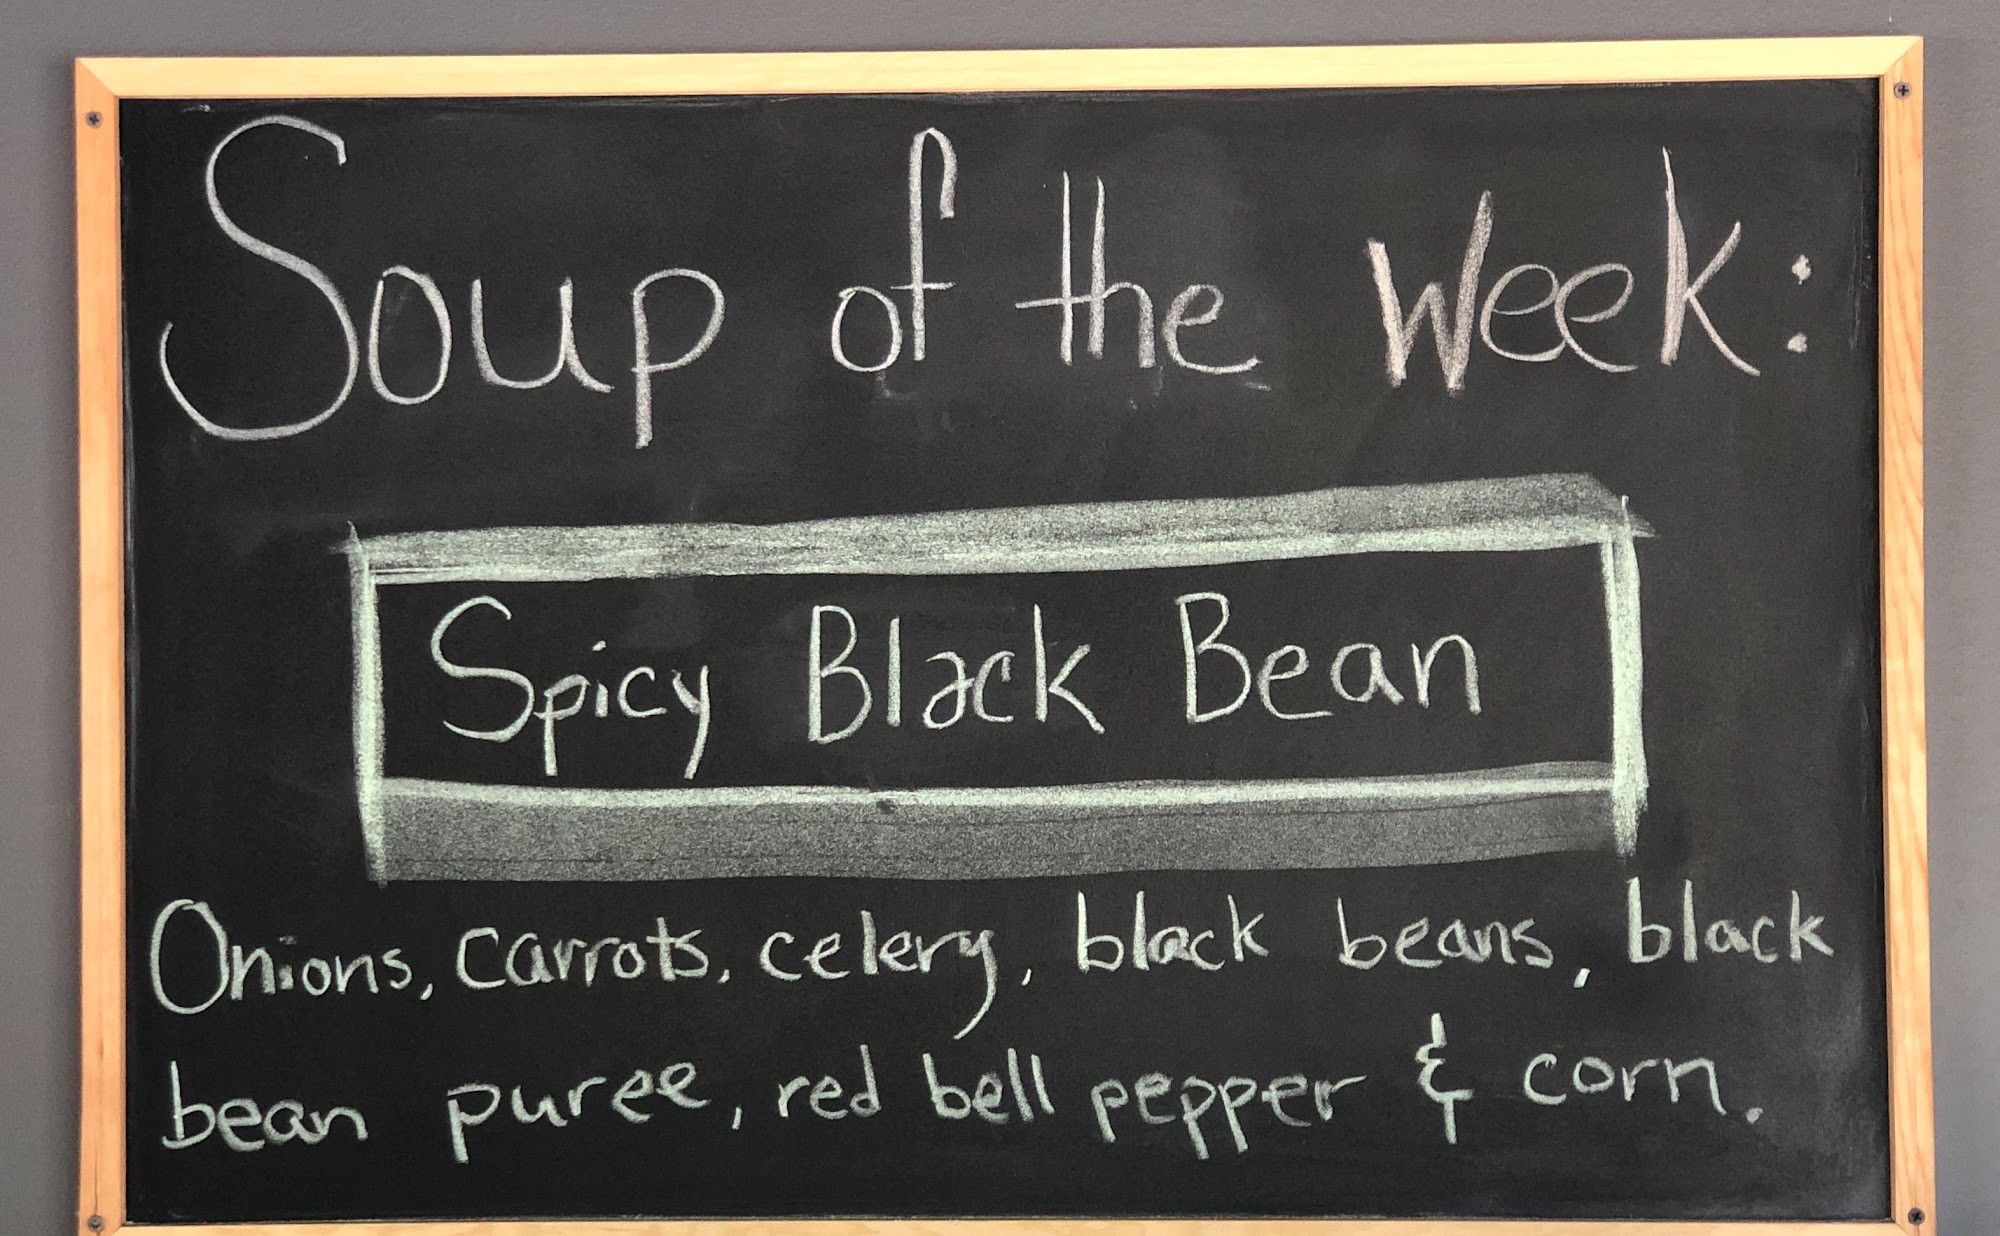 Soup of the week:
Spicy Black Bean
Onions, carrots, celery, black beans, black
bean puree, red bell pepper & corn.